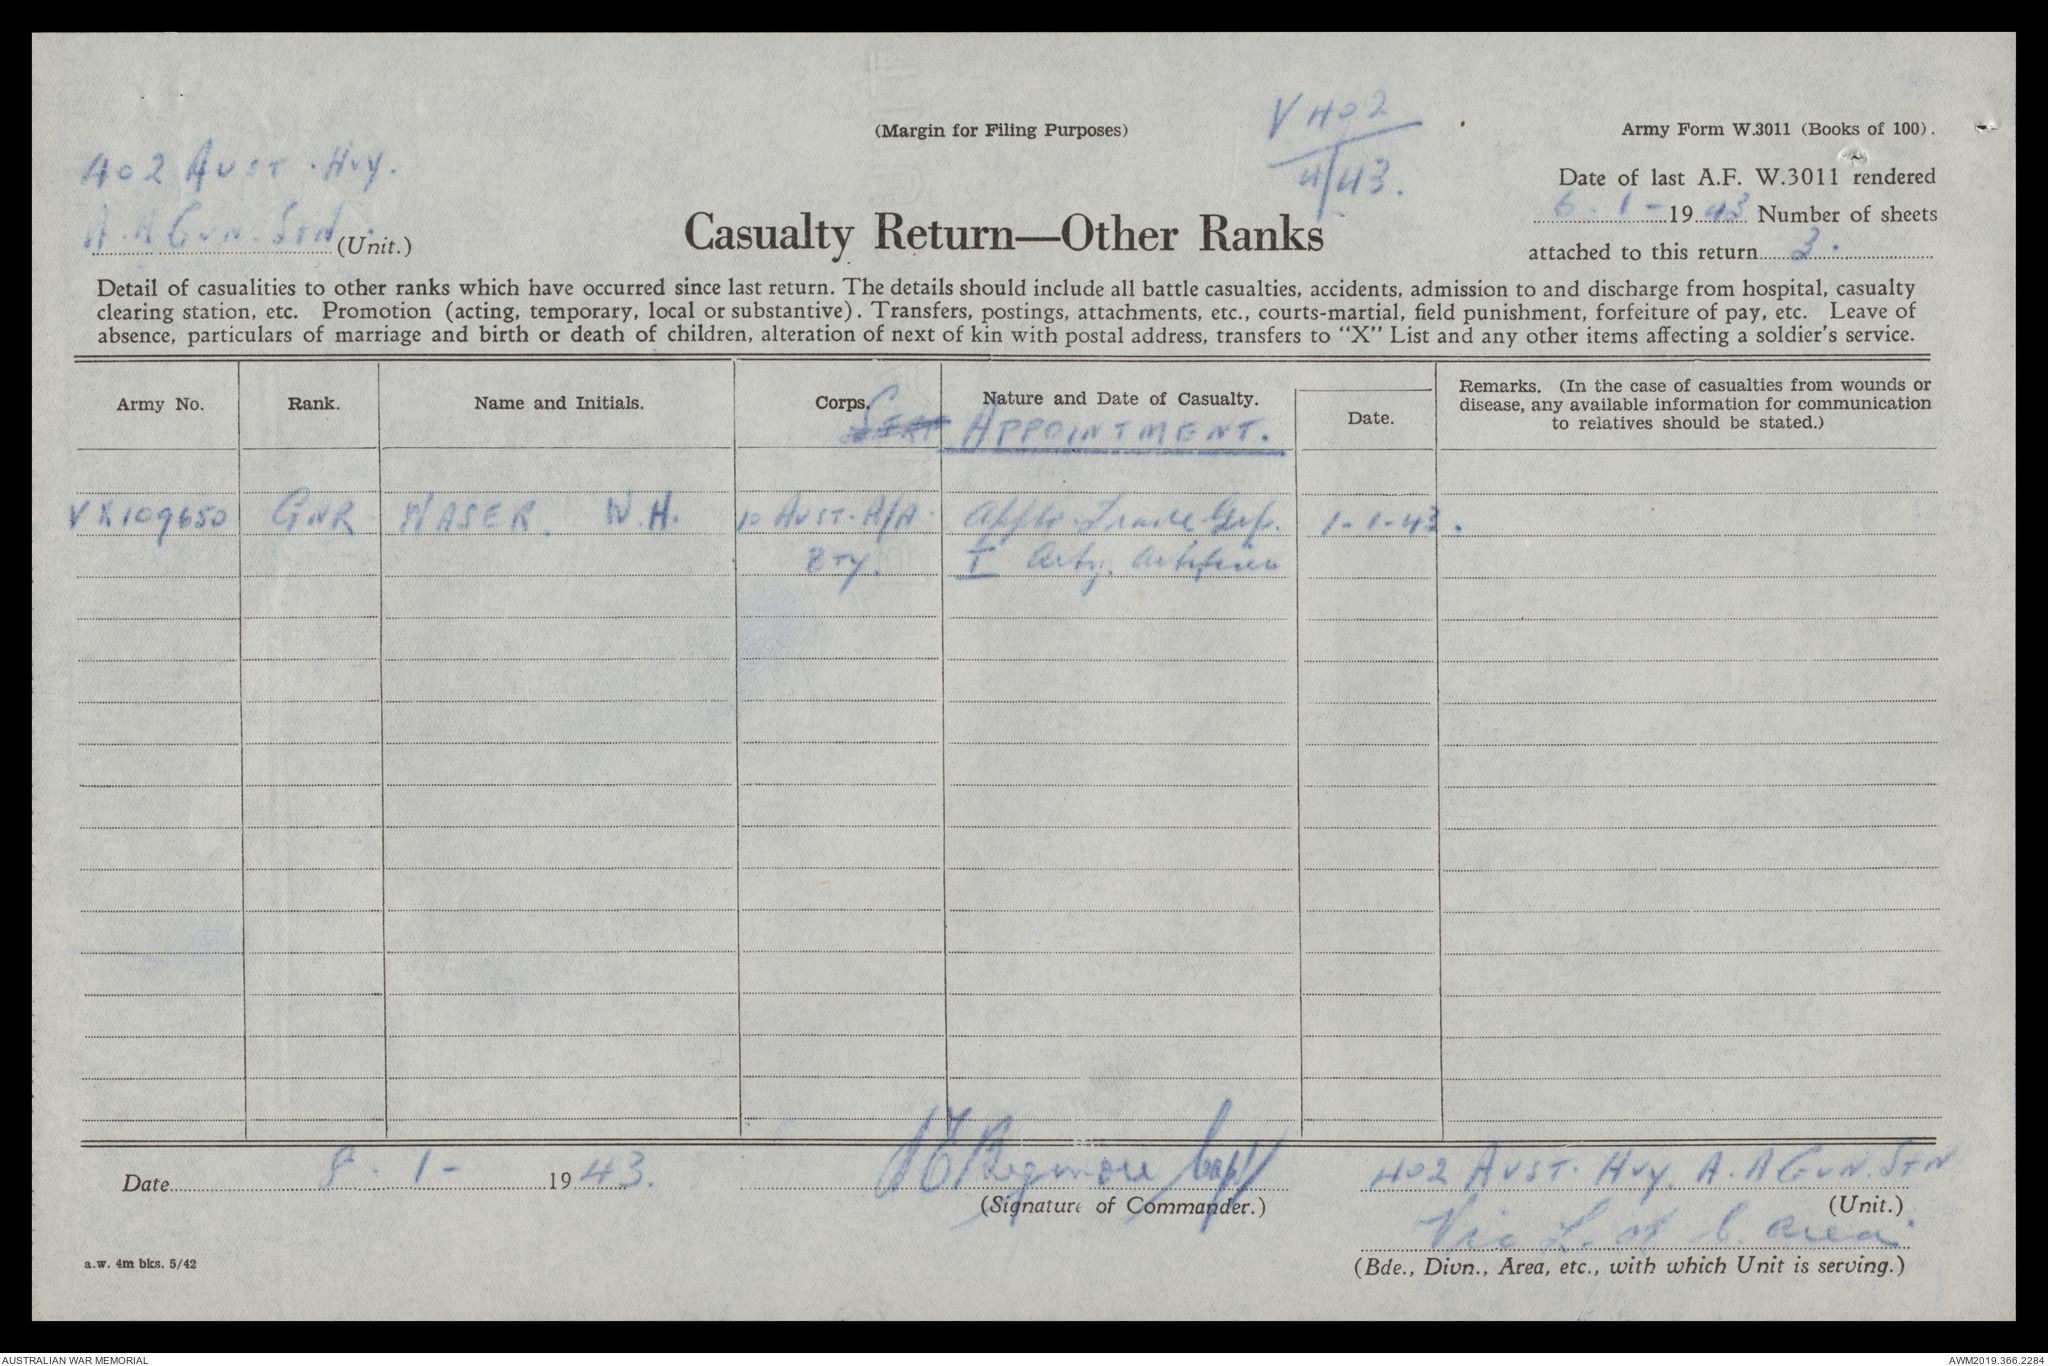 (Margin for Filing Purposes)
V 402
4/43.
Army Form W.3011 (Books of 100).
402 AUST. HVY.
A.A GUN. STN. (Unit.)
Casualty Return—Other Ranks
Date of last A.F. W.3011 rendered
6-1-1943 Number of sheets
attached to this return 3.
Detail of casualities to other ranks which have occurred since last return. The details should include all battle casualties, accidents, admission to and discharge from hospital, casualty
clearing station, etc. Promotion (acting, temporary, local or substantive). Transfers, postings, attachments, etc., courts-martial, field punishment, forfeiture of pay, etc. Leave of
absence, particulars of marriage and birth or death of children, alteration of next of kin with postal address, transfers to "X" List and any other items affecting a soldier's service.
Army No. Rank. Name and Initials. Corps. Nature and Date of Casualty. Date. Remarks. (In the case of casualties from wounds or
disease, any available information for communication
to relatives should be stated.)
APPOINTMENT.
VX109650 GNR WASER. W.H. 10 AUST. A/A. Appto. Trade Grp. 1-1-43.
BTY. I Arty. Artificer
Date 8-1-1943.
Capt
(Signature of Commander.)
402 AUST. HVY. A.A GUN. STN
(Unit.)
Vic L. of C. Area.
(Bde., Divn., Area, etc., with which Unit is serving.)
a.w. 4m bks. 5/42
AUSTRALIAN WAR MEMORIAL
AWM2019.366.2284